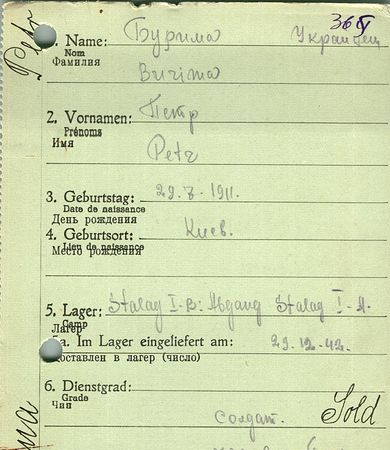 Petr
365
1. Name: Бурима Украинец
Nom
Фамилия
Burima
2. Vornamen: Петр
Prénoms
Имя
Petr
3. Geburtstag: 29.7.1911.
Date de naissance
День рождения
4. Geburtsort: Киев.
Lieu de naissance
Место рождения
5. Lager: Stalag I-B: Abgang Stalag I-A.
Camp
Лагерь
a. Im Lager eingeliefert am: 29.12.42.
доставлен в лагерь (число)
6. Dienstgrad:
Grade
Чин
Солдат. Sold